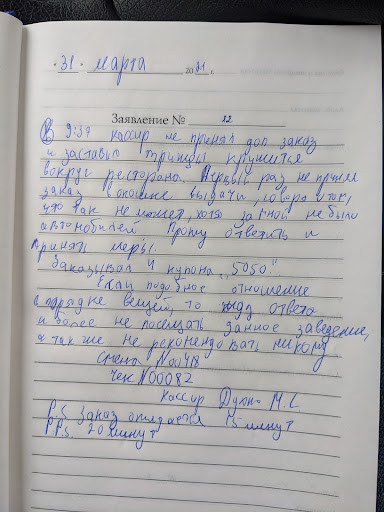 31 марта 2021 г.
Заявление № 12
В 9:37 кассир не принял доп заказ
и заставил трижды кружиться
вокруг ресторана. Первый раз не принял
заказ в окошке выдачи, говоря о том,
что так не может, хотя за мной не было
автомобилей. Прошу ответить и
принять меры.
Заказывал 4 купона "5050"
Если подобное отношение
в порядке вещей, то жду ответа
и более не посещать данное заведение,
а так же не рекомендовать никому
Смена №00418
Чек №00082
Кассир М.С
P.S. Заказ отдается 15 минут
PPS. 20 минут